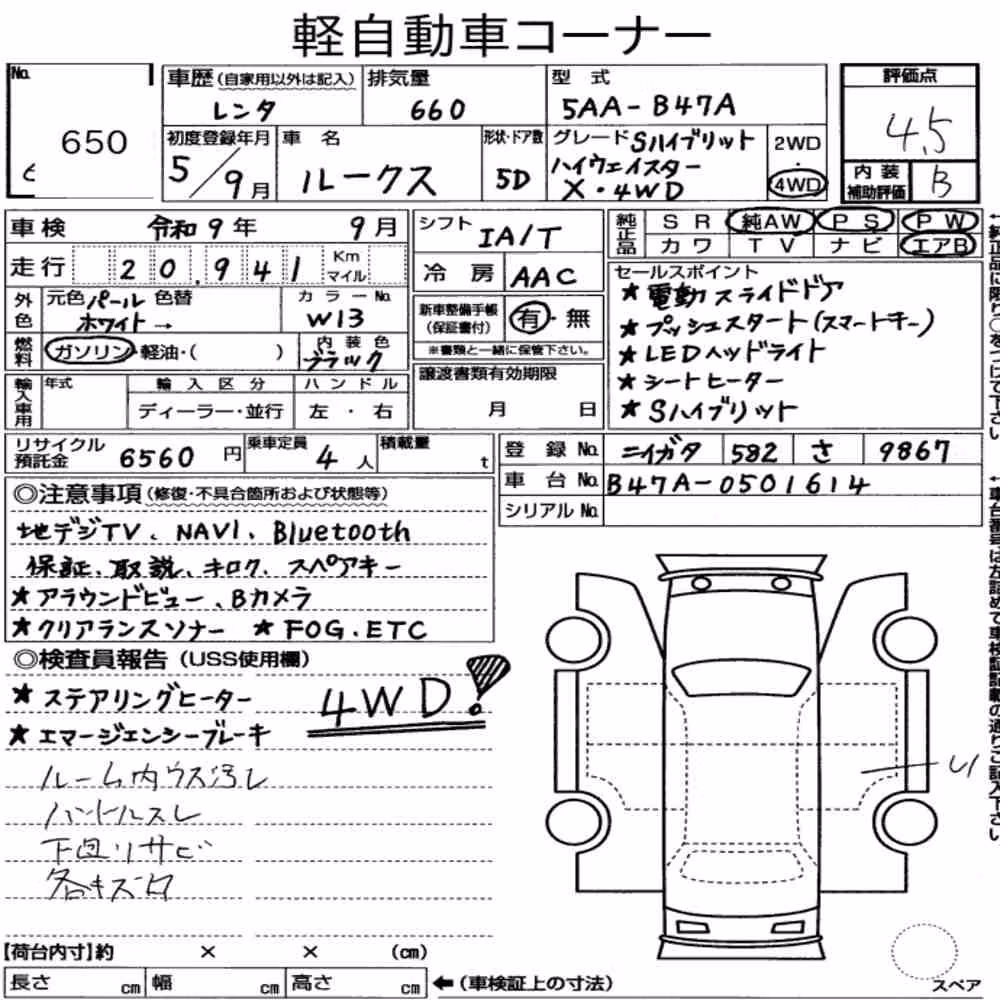 軽自動車コーナー
No.
650
車歴(自家用以外は記入)
レンタ
排気量
660
型 式
5AA-B47A
評価点
4.5
初度登録年月
5/9月
車 名
ルークス
形状・ドア数
5D
グレード Sハイブリット
ハイウェイスター
X・4WD
2WD
・
4WD
内 装
補助評価
B
車検 令和9年 9月
走行 20,941 Km マイル
シフト
IA/T
冷 房 AAC
純正品
SR 純AW PS PW
カワ TV ナビ エアB
外色
元色 パール 色替
ホワイト →
カラーNo.
W13
新車整備手帳
(保証書付)
有・無
※書類と一緒に保管下さい。
セールスポイント
★電動スライドドア
★プッシュスタート(スマートキー)
★LEDヘッドライト
★シートヒーター
★Sハイブリット
燃料
ガソリン・軽油・( )
内装色
ブラック
輸入車用
年式
輸入区分
ディーラー・並行
ハンドル
左・右
譲渡書類有効期限
月 日
リサイクル
預託金 6560 円
乗車定員
4人
積載量
t
登録No. ニイガタ 582 さ 9867
車台No. B47A-0501614
シリアルNo.
◎注意事項(修復・不具合箇所および状態等)
地デジTV、NAVI、Bluetooth
保証、取説、キロク、スペアキー
★アラウンドビュー、Bカメラ
★クリアランスソナー ★FOG.ETC
◎検査員報告(USS使用欄)
★ステアリングヒーター
4WD!
★エマージェンシーブレーキ
ルーム内ウス汚レ
ハンドルスレ
下回リサビ
各キズ
【荷台内寸】約 × × (cm)
長さ cm 幅 cm 高さ cm ←(車検証上の寸法)
スペア
←純正品に限り○をつけて下さい
←車台番号は左詰めで車検証記載の通りご記入下さい